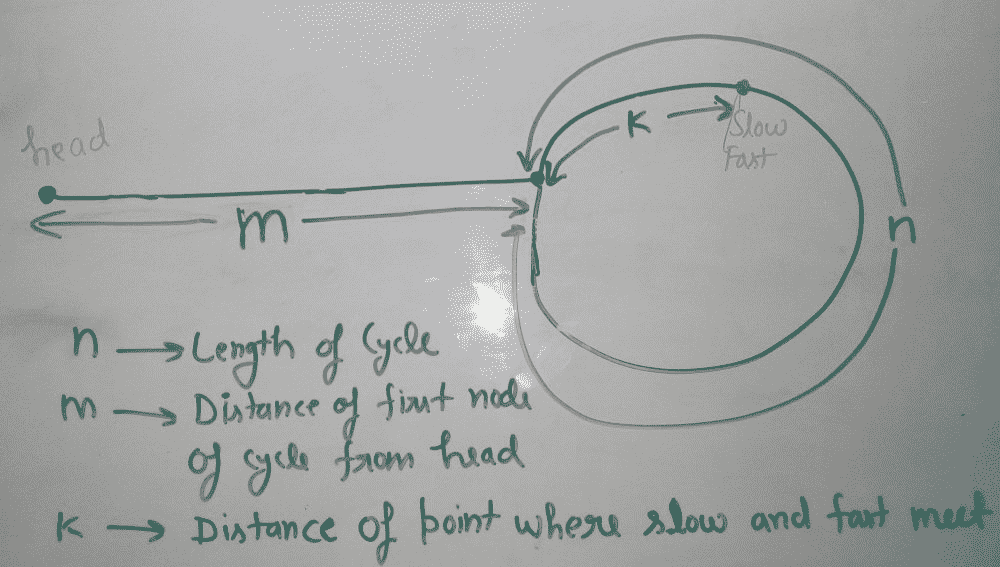 head
K
Slow
Fast
m
n
n → Length of Cycle
m → Distance of first node
of cycle from head
K → Distance of point where slow and fast meet